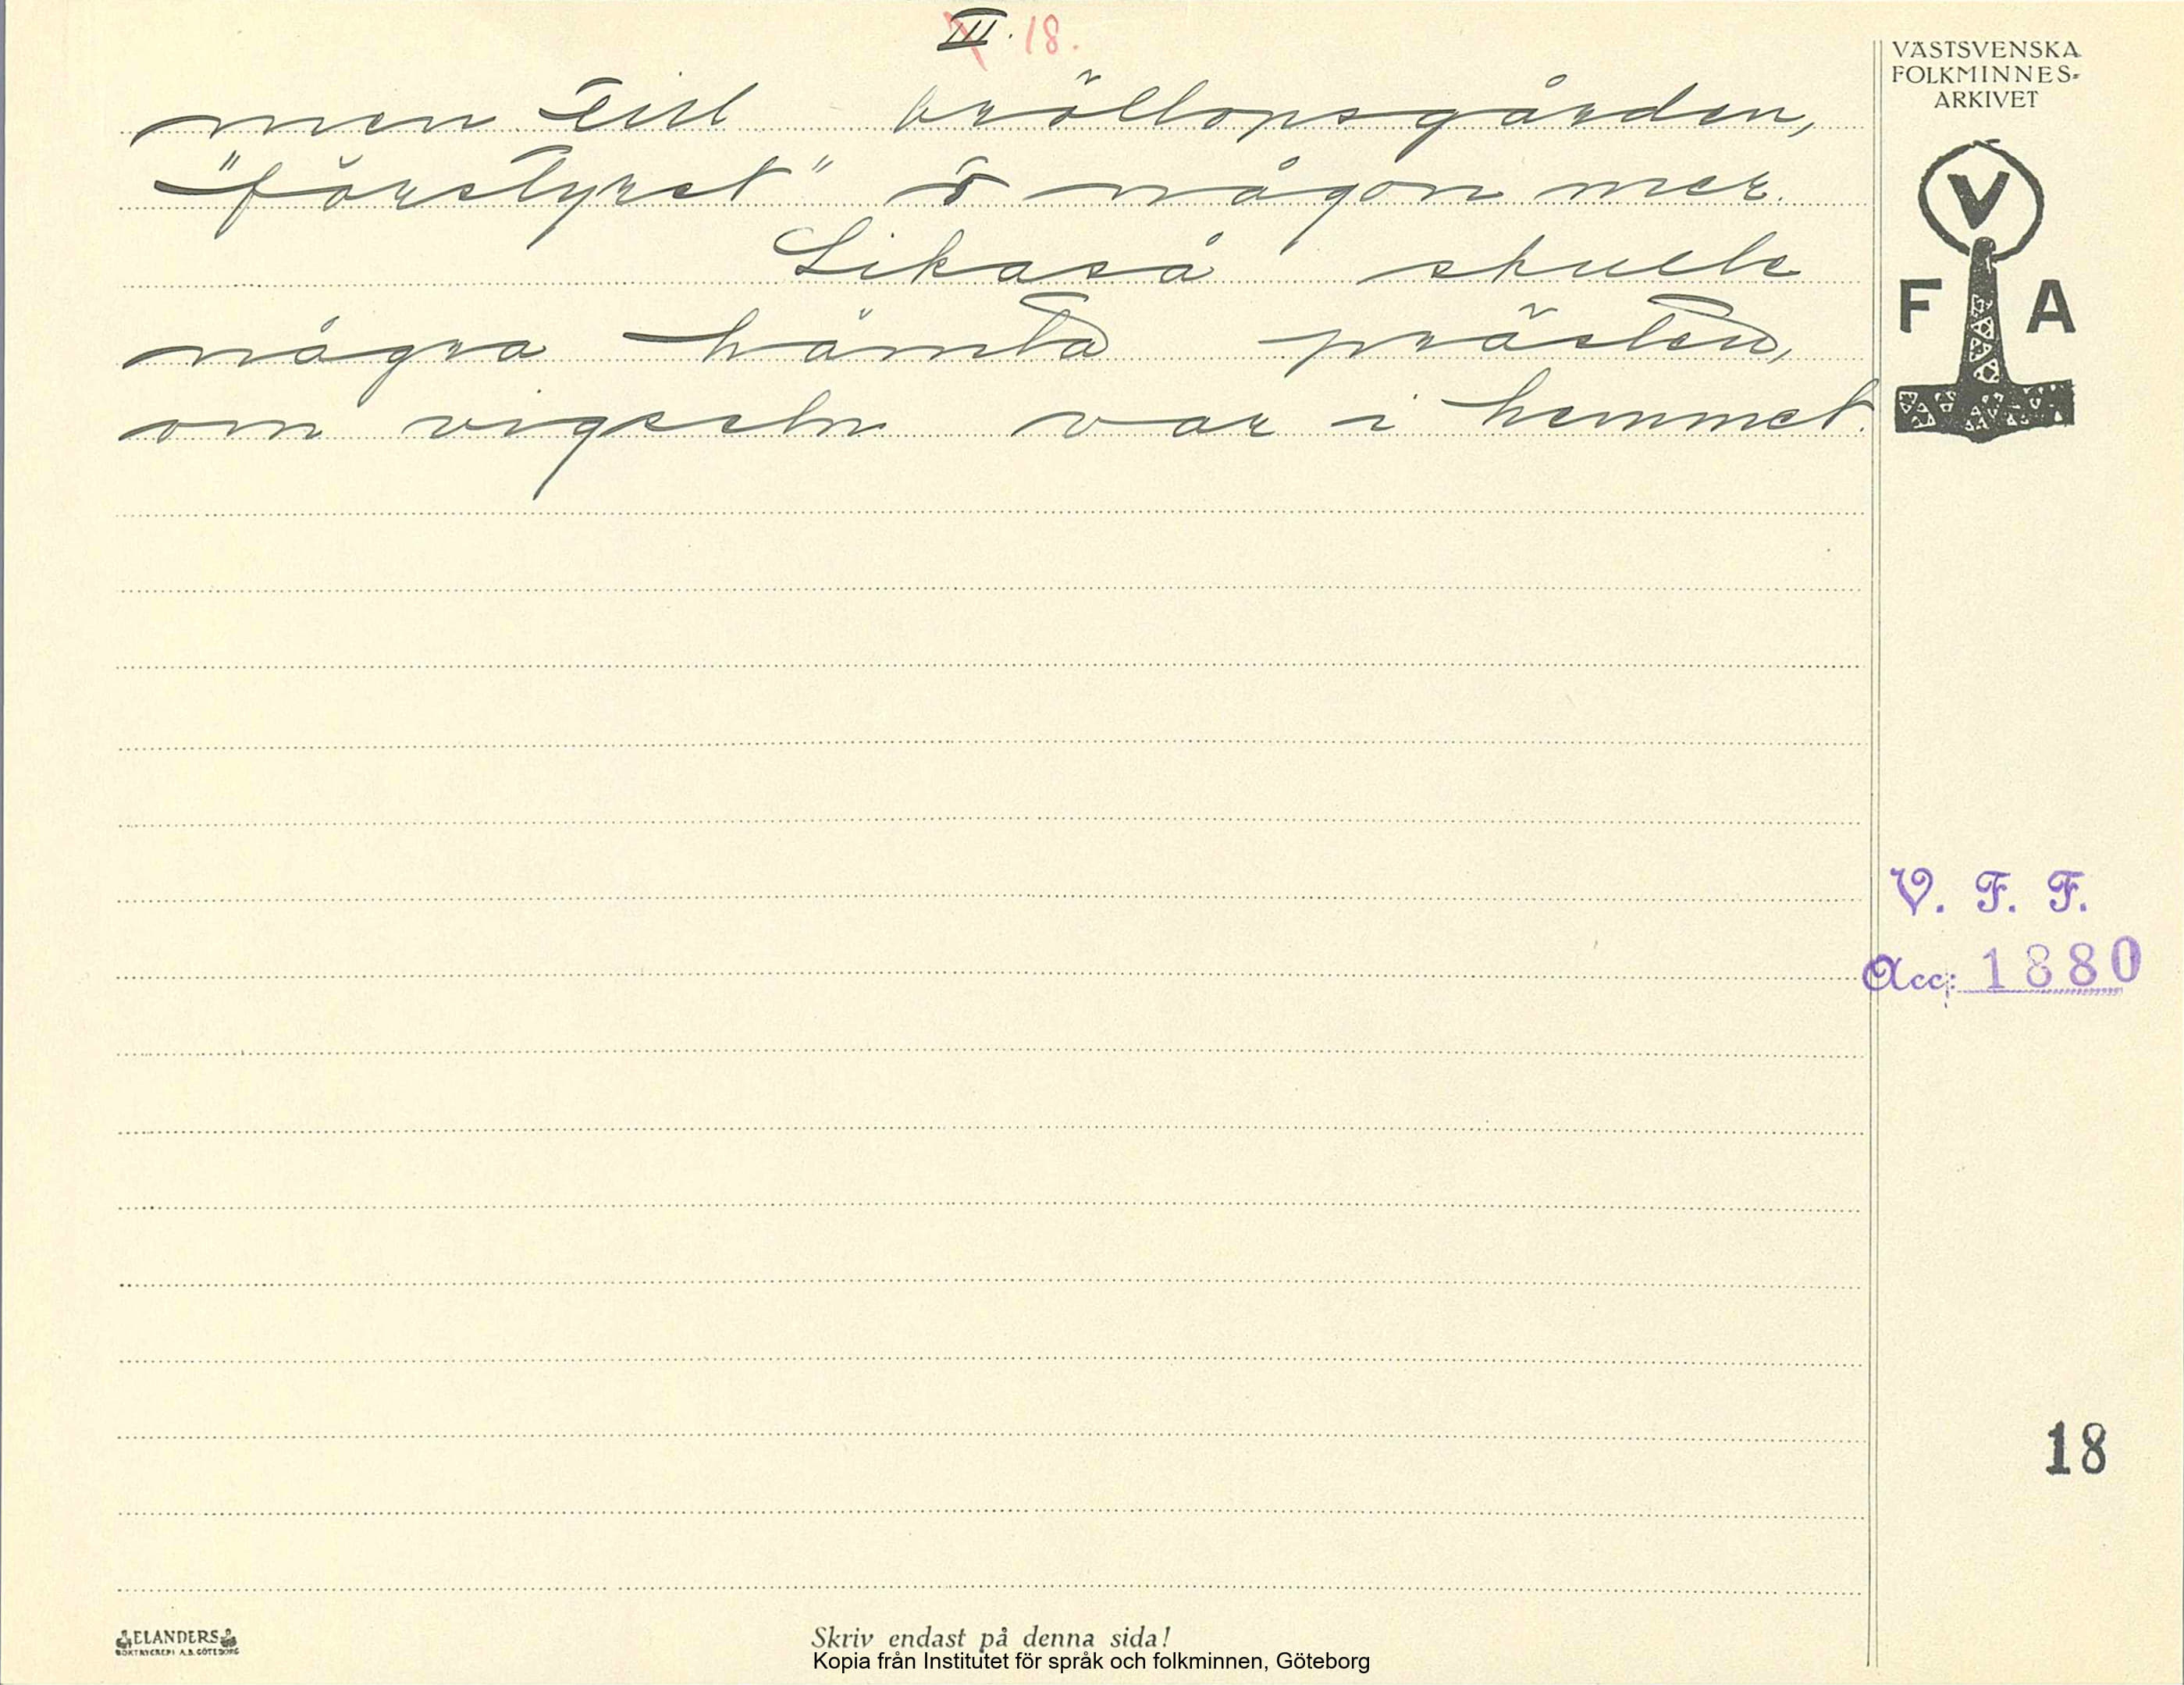 III. 18.
men till bröllopsgården,
"förstyret" o någon mer.
Likaså skulle
några hämta prästen,
om vigseln var i hemmet.
VÄSTSVENSKA
FOLKMINNES-
ARKIVET
V
F A
V. F. F.
Acc: 1880
18
ELANDERS
BOKTRYCKERI A.B. GÖTEBORG
Skriv endast på denna sida!
Kopia från Institutet för språk och folkminnen, Göteborg